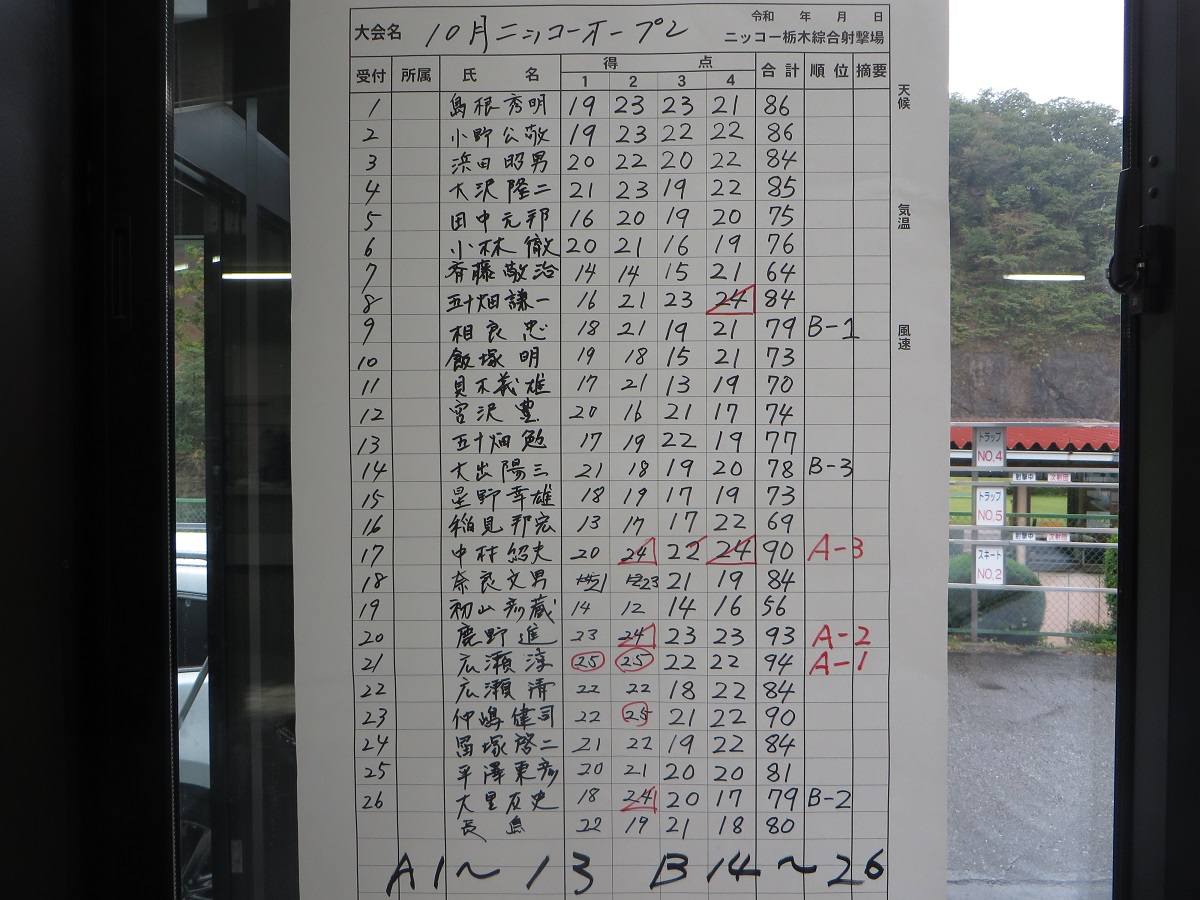 大会名 10月ニッコーオープン 令和 年 月 日
ニッコー栃木綜合射撃場
受付 所属 氏 名 得 点 合計 順位 摘要
1 2 3 4
1 島根秀明 19 23 23 21 86
2 小野公敬 19 23 22 22 86
3 浜田昭男 20 22 20 22 84
4 大沢隆二 21 23 19 22 85
5 田中元邦 16 20 19 20 75
6 小林徹 20 21 16 19 76
7 斉藤敬治 14 14 15 21 64
8 五十畑謙一 16 21 23 24 84
9 相良忠 18 21 19 21 79 B-1
10 飯塚明 19 18 15 21 73
11 貝木義雄 17 21 13 19 70
12 宮沢豊 20 16 21 17 74
13 五十畑勉 17 19 22 19 77
14 大出陽三 21 18 19 20 78 B-3
15 星野幸雄 18 19 17 19 73
16 稲見邦宏 13 17 17 22 69
17 中村 20 24 22 24 90 A-3
18 奈良文男 21 23 21 19 84
19 初山彦蔵 14 12 14 16 56
20 鹿野進 23 24 23 23 93 A-2
21 広瀬淳 25 25 22 22 94 A-1
22 広瀬清 22 22 18 22 84
23 仲嶋健司 22 25 21 22 90
24 塚啓二 21 22 19 22 84
25 平澤東彦 20 21 20 20 81
26 大里 史 18 24 20 17 79 B-2
長島 22 19 21 18 80
A1～13 B14～26
天候
気温
風速
トラップ
NO.4
トラップ
NO.5
スキート
NO.2